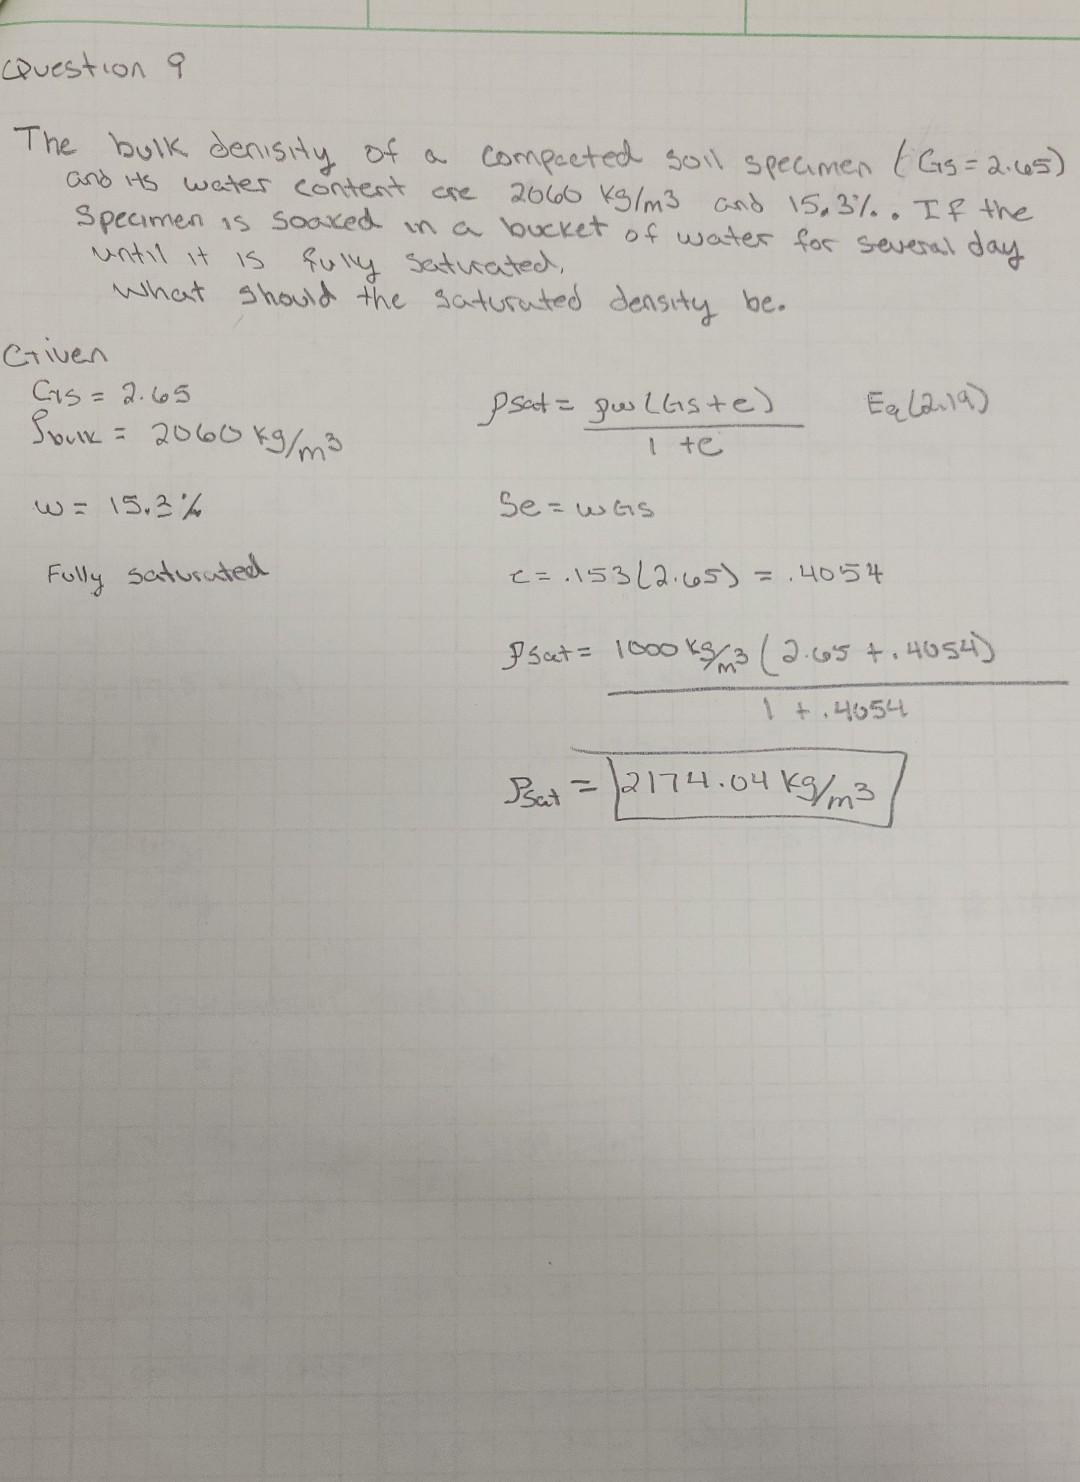 Question 9
The bulk denisity of a compacted soil specimen (Gs = 2.65)
and its water content are 2060 kg/m3 and 15.3%. If the
specimen is soaked in a bucket of water for several day
until it is fully saturated,
what should the saturated density be.
Given
Gs = 2.65
ρbulk = 2060 kg/m3
w = 15.3%
Fully saturated
ρsat = ρw (Gs + e) Eq (2.19)
1 + e
Se = wGs
e = .153(2.65) = .4054
ρsat = 1000 kg/m3 (2.65 + .4054)
1 + .4054
ρsat = 2174.04 kg/m3